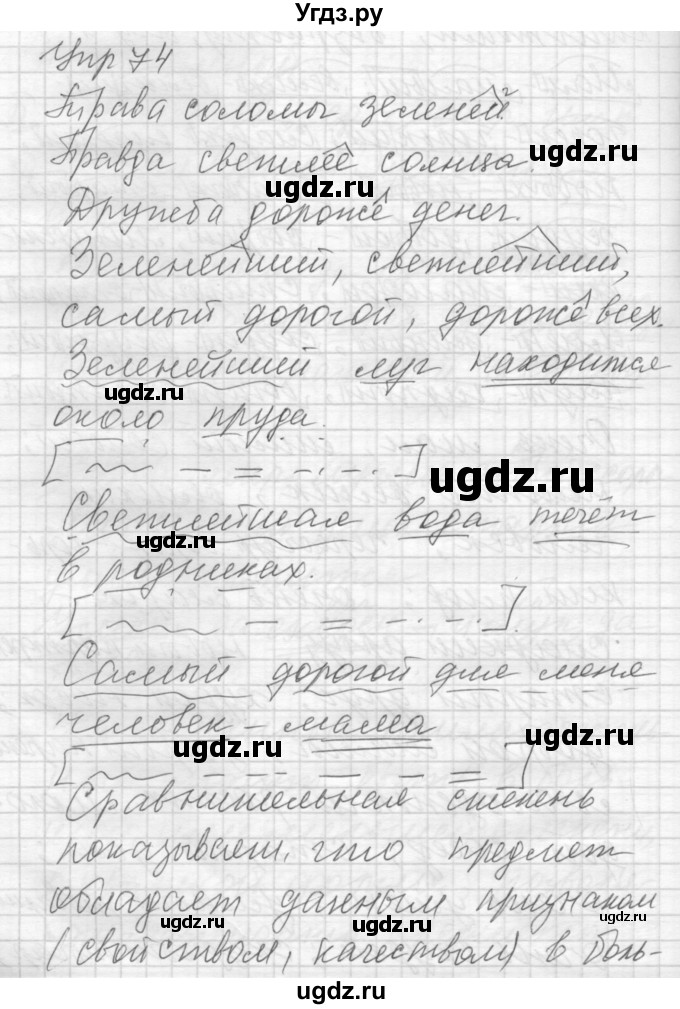 Угдз.ру
Упр 74
Трава соломы зеленей.
ugdz.ru
Правда светлее солнца.
ugdz.ru
Дружба дороже денег.
Зеленейший, светлейший,
самый дорогой, дороже всех.
Зеленейший луг находится
ugdz.ru
около пруда.
ugdz.ru
Светлейшая вода течёт
ugdz.ru
в родниках.
Самый дорогой для меня
человек – мама
ugdz.ru ugdz.ru
Сравнительная степень
показывает, что предмет
обладает данным признаком
ugdz.ru ugdz.ru
(свойством, качеством) в боль-
ugdz.ru
ugdz.ru